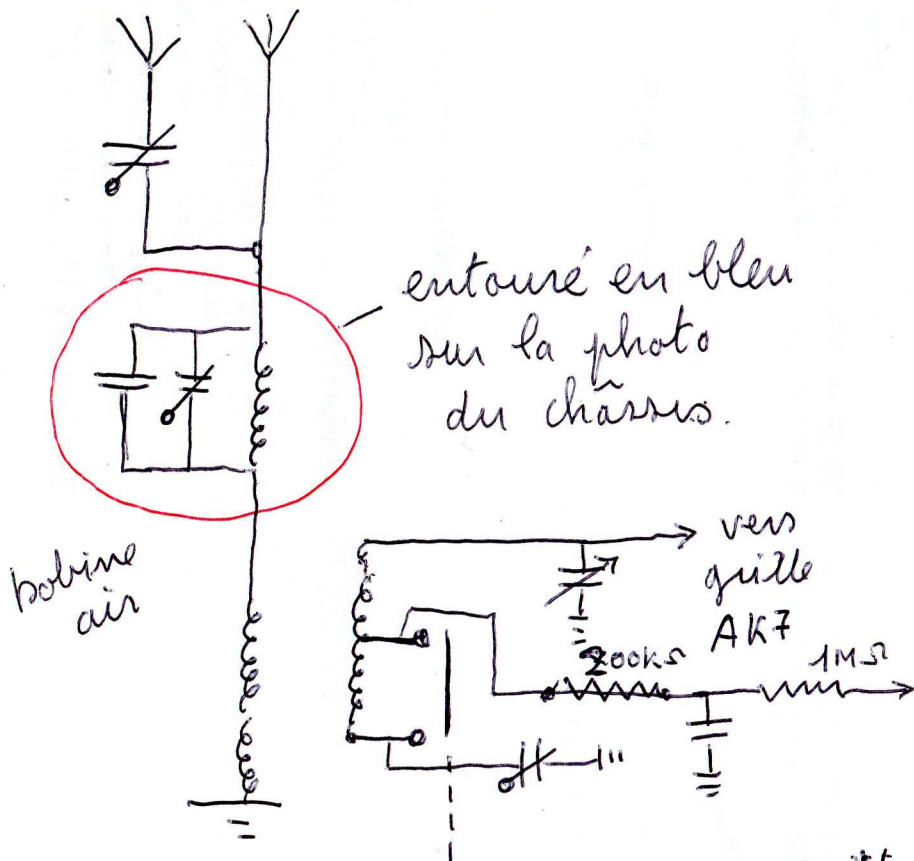 entouré en bleu
sur la photo
du châssis.
bobine
air
vers
grille
AK7
200KΩ
1MΩ